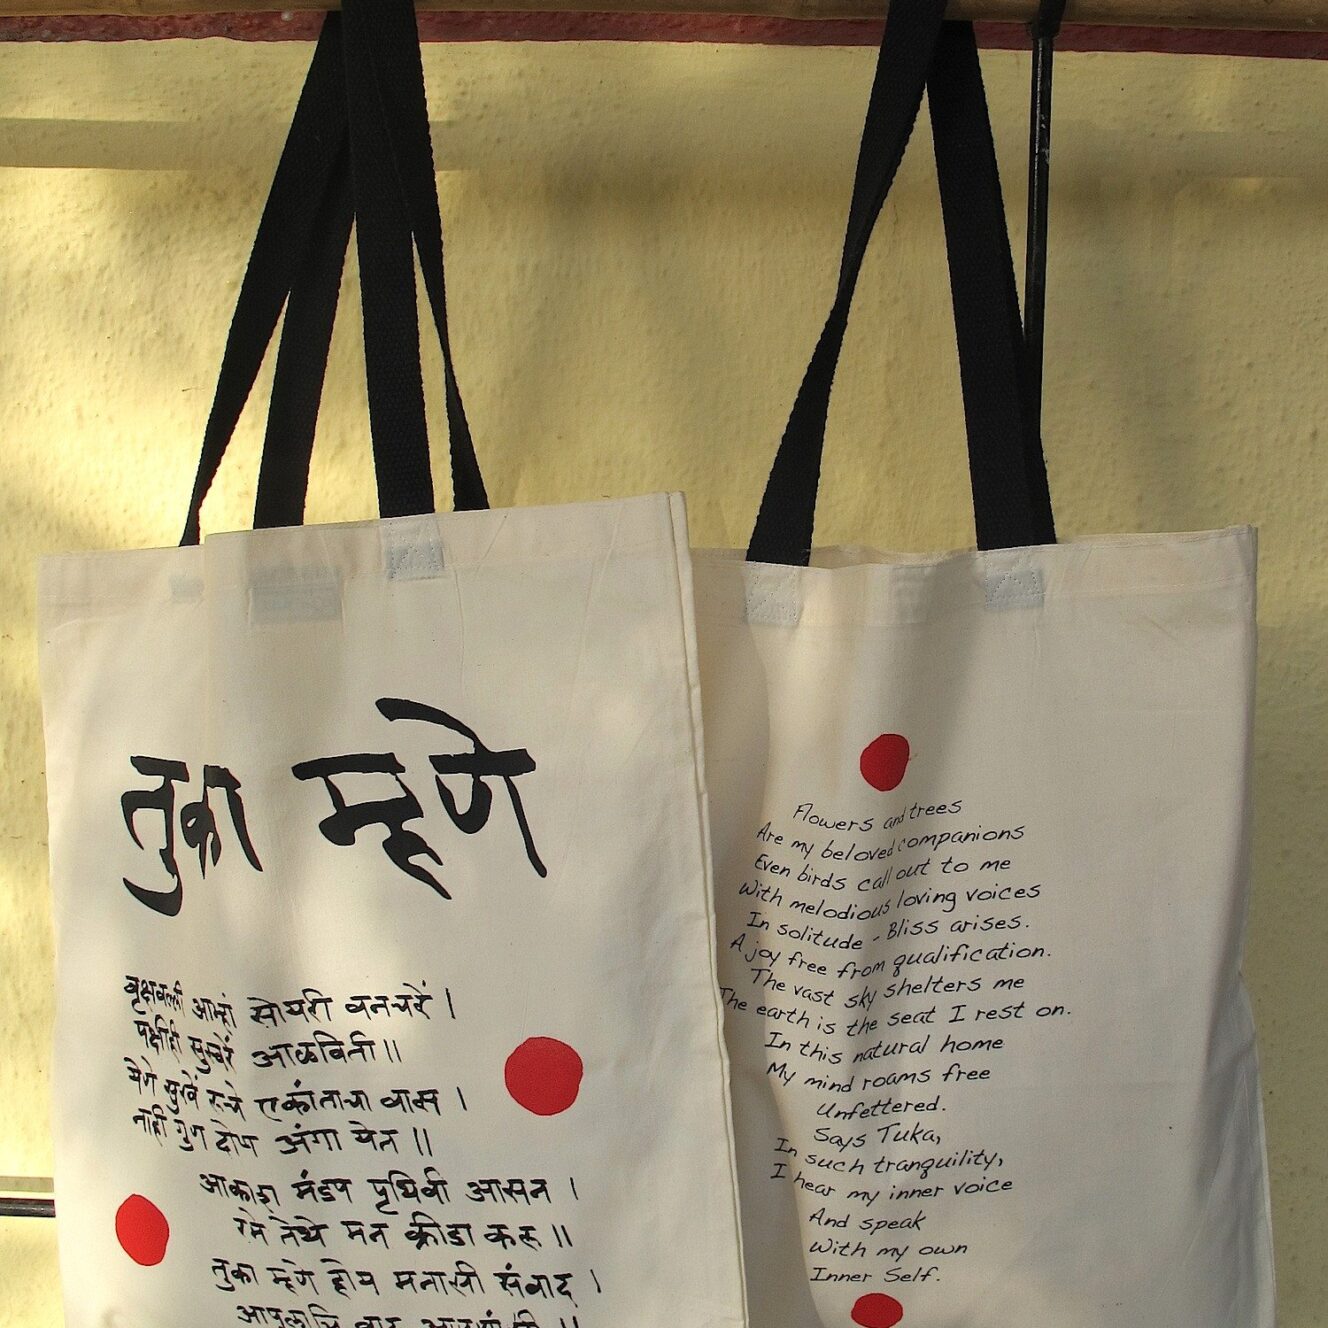 तुका म्हणे
वृक्षवल्ली आम्हां सोयरीं वनचरें ।
पक्षीही सुस्वरें आळविती ॥
येणे सुखें रुचे एकांताचा वास ।
नाही गुण दोष अंगा येत ॥
आकाश मंडप पृथिवी आसन ।
रमे तेथे मन क्रीडा करू ॥
तुका म्हणे होय मनासी संवाद ।
आपुलाचि वाद
Flowers and trees
Are my beloved companions
Even birds call out to me
With melodious loving voices
In solitude - Bliss arises.
A joy free from qualification.
The vast sky shelters me
The earth is the seat I rest on.
In this natural home
My mind roams free
Unfettered.
Says Tuka,
In such tranquility,
I hear my inner voice
And speak
With my own
Inner Self.